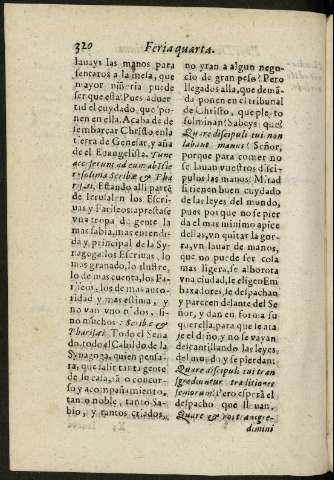 320
Feria quarta.
lauays las manos para
sentaros a la mesa, que
mayor niñeria puede
ser que esta? Pues aduer
tid el cuydado, que po-
nen en ella. Acaba de de
sembarcar Christo en la
tierra de Genesar, y aña
de el Euangelista. Tunc
accesserunt ad eum ab Hie
rosolima Scribæ & Pha
risæi, Estando alli parte
de Ierusalen los Escri
uas y Fariseos: aprestase
vna tropa de gente la
mas sabia, mas entendi
da, y principal de la Sy
nagoga: los Escriuas, lo
mas granado, lo ilustre,
lo de mas cuenta, los Fa
riseos, los de mas auto-
ridad y mas estima, y
no van vno n' dos, si-
no muchos: Scribæ &
Pharisæi. Todo el Sena
do, todo el Cabildo de la
Synagoga, quien pensa-
ra, que salir tanta gente
de su casa, tā o concur-
so y acompañamiento,
tan o noble, tanto Sa-
bio, y tantos criados,
no yran a algun nego-
cio de gran peso? Pero
llegados alla, que demā
da ponen en el tribunal
de Christo, que pleyto
fulminan? Sabeys que?
Quare discipuli tui non
labant manus? Señor,
porque para comer no
se lauan vuestros disci-
pulos las manos? Mirad
si tienen buen cuydado
de las leyes del mundo,
pues porque no se pier
da el mas minimo apice
dellas, vn quitar la gor-
ra, vn lauar de manos,
que no puede ser cola
mas ligera, se alborota
vna ciudad, se eligen Em
baxadores, se despachan
y parecen delante del Se
ñor, y dan en forma su
querella, para que se ata
je el daño, y no se vayan
descantillando las leyes
del mundo y se pierdan:
Quare discipuli tui tran
sgrediuntur traditiones
seniorum? Pero esperā el
despacho que lleuan,
Quare & vos transgre-
dimini